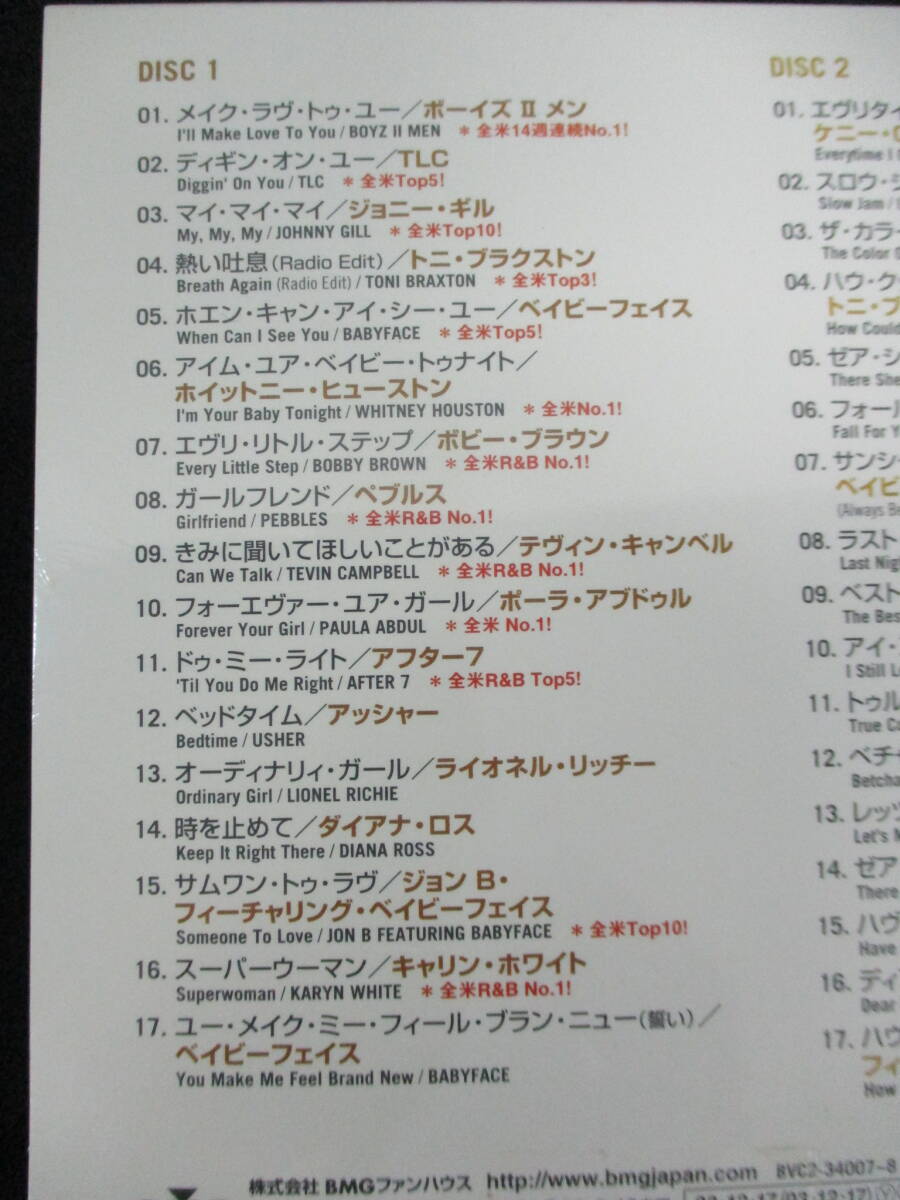 DISC 1
01. メイク・ラヴ・トゥ・ユー／ボーイズ II メン
I'll Make Love To You / BOYZ II MEN ＊全米14週連続No.1!
02. ディギン・オン・ユー／TLC
Diggin' On You / TLC ＊全米Top5!
03. マイ・マイ・マイ／ジョニー・ギル
My, My, My / JOHNNY GILL ＊全米Top10!
04. 熱い吐息(Radio Edit)／トニ・ブラクストン
Breath Again (Radio Edit) / TONI BRAXTON ＊全米Top3!
05. ホエン・キャン・アイ・シー・ユー／ベイビーフェイス
When Can I See You / BABYFACE ＊全米Top5!
06. アイム・ユア・ベイビー・トゥナイト／
ホイットニー・ヒューストン
I'm Your Baby Tonight / WHITNEY HOUSTON ＊全米No.1!
07. エヴリ・リトル・ステップ／ボビー・ブラウン
Every Little Step / BOBBY BROWN ＊全米R&B No.1!
08. ガールフレンド／ペブルス
Girlfriend / PEBBLES ＊全米R&B No.1!
09. きみに聞いてほしいことがある／テヴィン・キャンベル
Can We Talk / TEVIN CAMPBELL ＊全米R&B No.1!
10. フォーエヴァー・ユア・ガール／ポーラ・アブドゥル
Forever Your Girl / PAULA ABDUL ＊全米 No.1!
11. ドゥ・ミー・ライト／アフター7
'Til You Do Me Right / AFTER 7 ＊全米R&B Top5!
12. ベッドタイム／アッシャー
Bedtime / USHER
13. オーディナリィ・ガール／ライオネル・リッチー
Ordinary Girl / LIONEL RICHIE
14. 時を止めて／ダイアナ・ロス
Keep It Right There / DIANA ROSS
15. サムワン・トゥ・ラヴ／ジョン B・
フィーチャリング・ベイビーフェイス
Someone To Love / JON B FEATURING BABYFACE ＊全米Top10!
16. スーパーウーマン／キャリン・ホワイト
Superwoman / KARYN WHITE ＊全米R&B No.1!
17. ユー・メイク・ミー・フィール・ブラン・ニュー(誓い)／
ベイビーフェイス
You Make Me Feel Brand New / BABYFACE
DISC 2
01. エヴリタイ
ケニー・
Everytime I
02. スロウ・ジ
Slow Jam /
03. ザ・カラー
The Color
04. ハウ・ク
トニ・ブ
How Could
05. ゼア・シ
There She
06. フォール
Fall For Y
07. サンシ
ベイビ
(Always Be
08. ラスト
Last Nigh
09. ベスト
The Bes
10. アイ・
I Still L
11. トゥル
True Co
12. ベチャ
Betcha
13. レッツ
Let's M
14. ゼア
There
15. ハヴ
Have
16. ディ
Dear
17. ハウ
フィ
How
株式会社 BMGファンハウス http://www.bmgjapan.com BVC2-34007~8